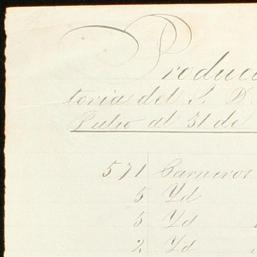 Produc
toria del S. D.
Julio al 31 de
571 Carneros
5 Yd
5 Yd
2 Yd